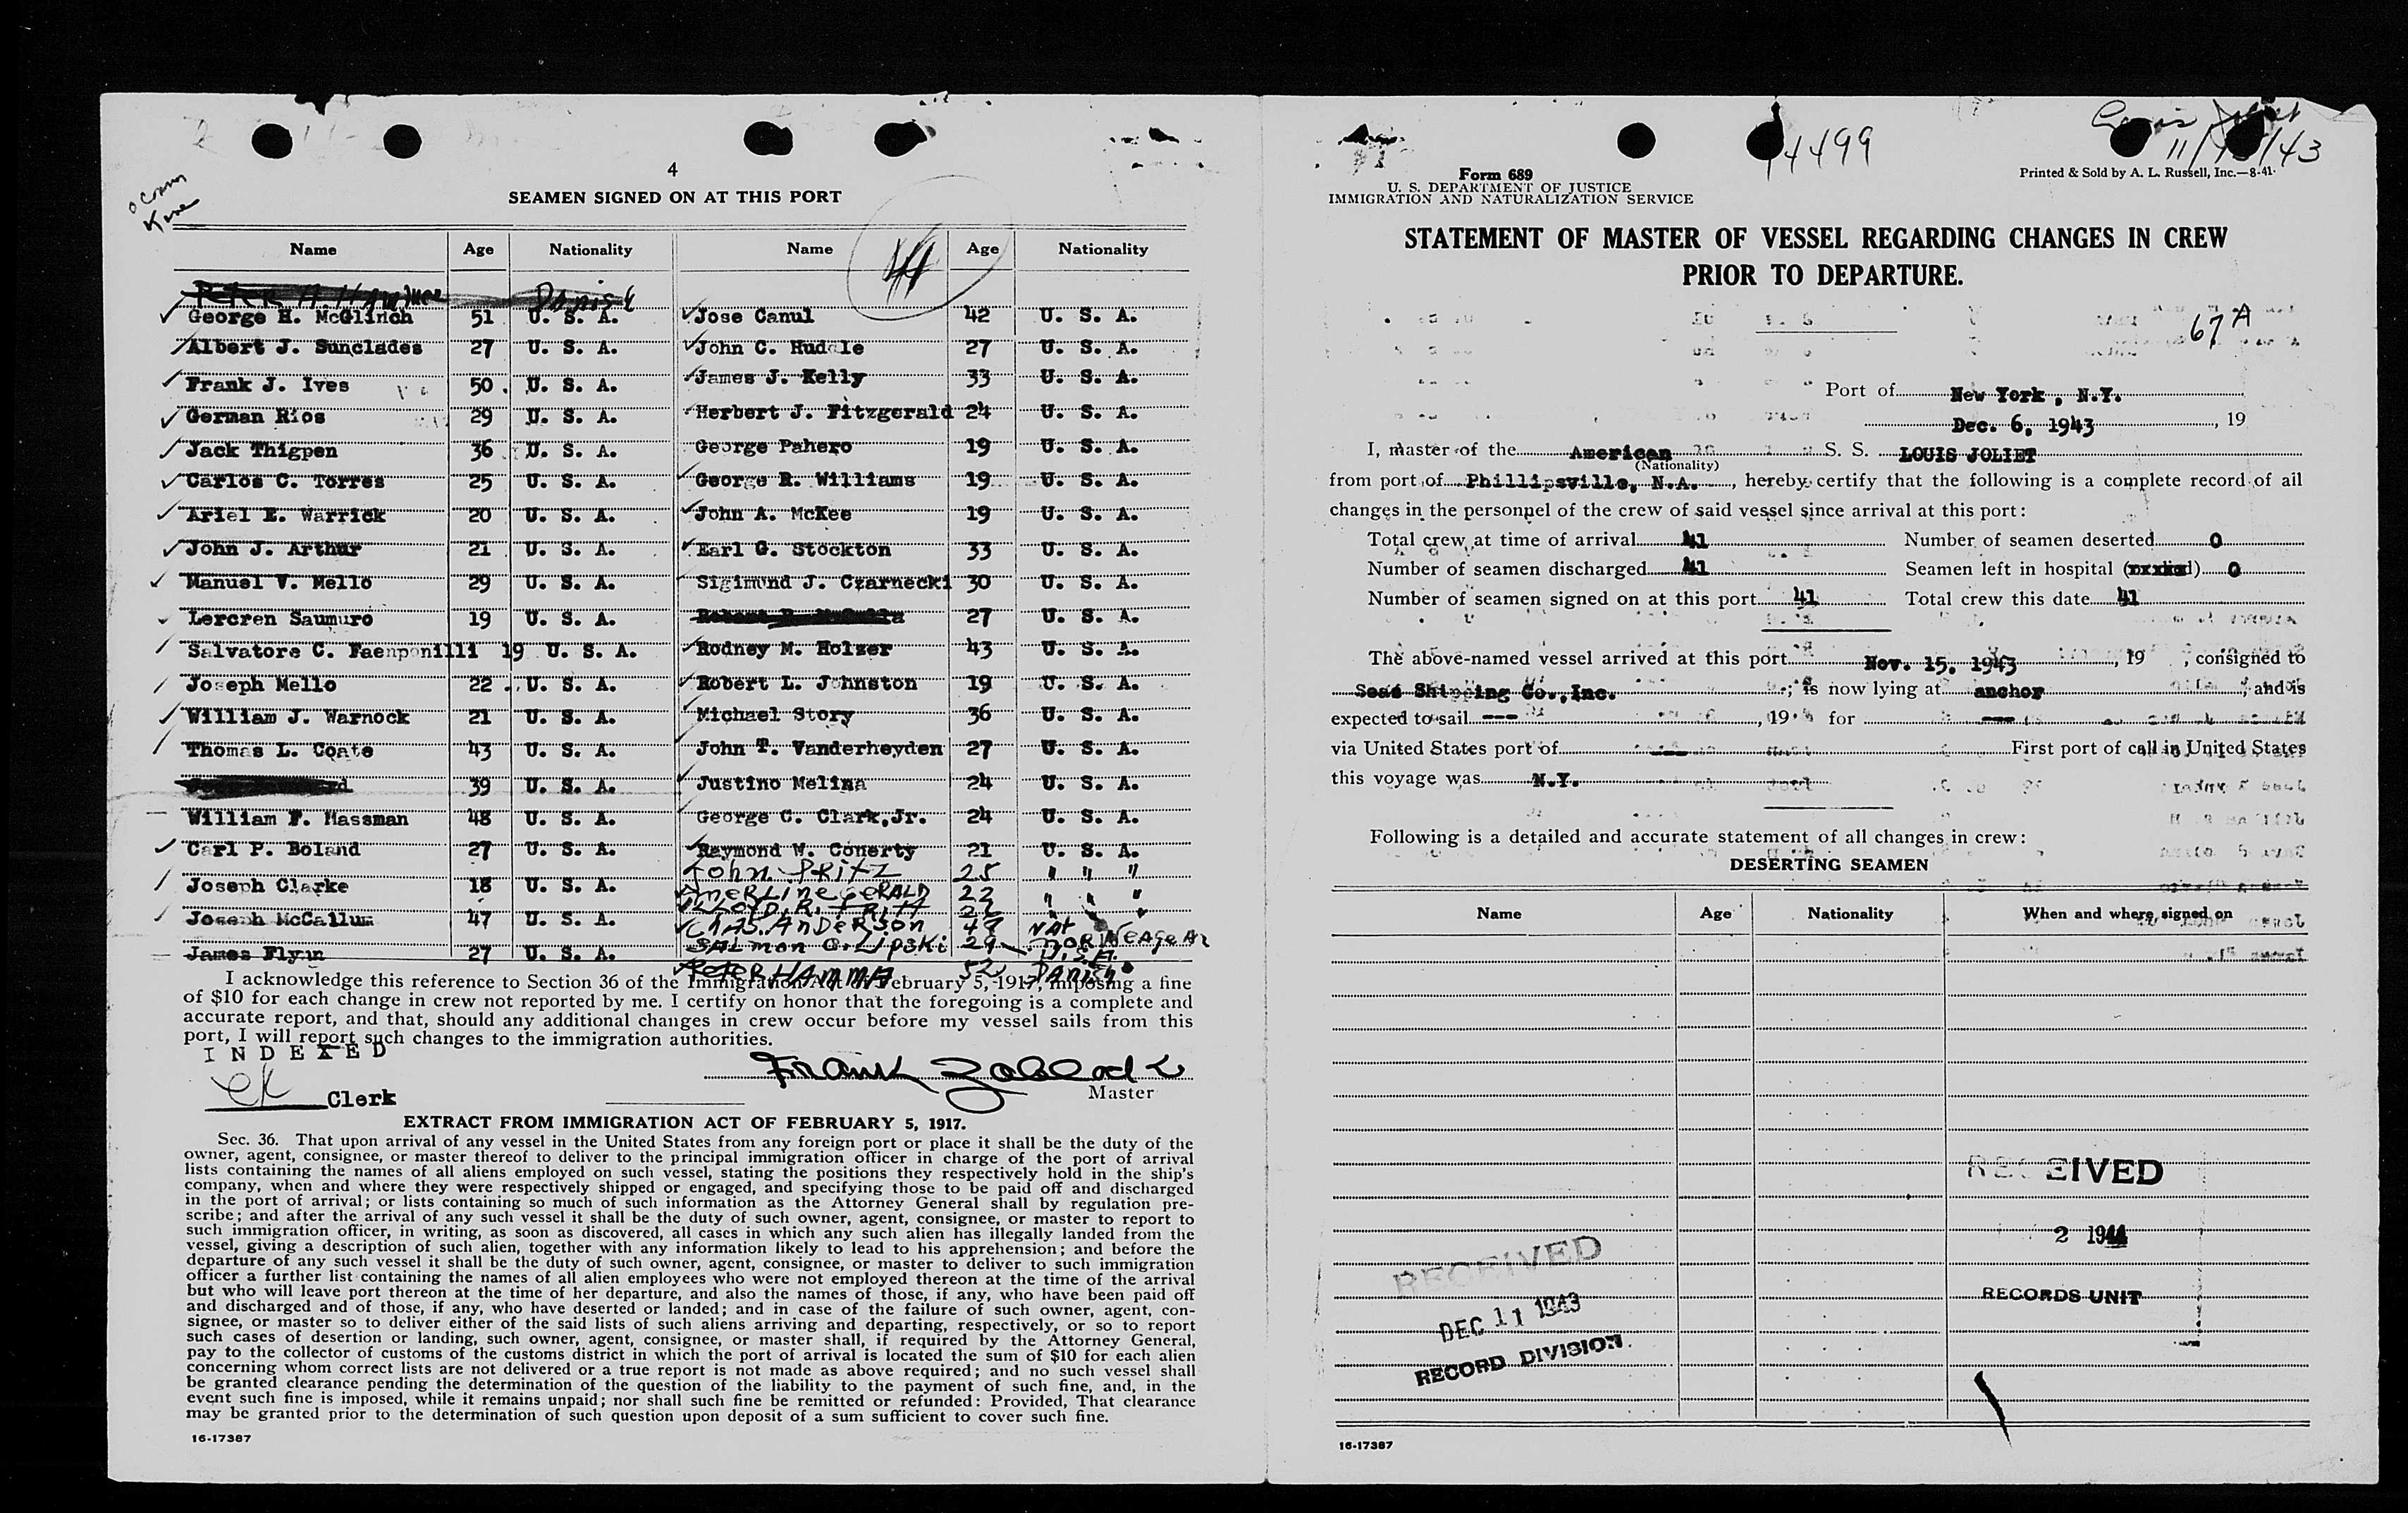 4
SEAMEN SIGNED ON AT THIS PORT
Name Age Nationality Name Age Nationality
Danish
George H. McGlinch 51 U. S. A. Jose Canul 42 U. S. A.
Albert J. Sunclades 27 U. S. A. John C. Huddle 27 U. S. A.
Frank J. Ives 50 U. S. A. James J. Kelly 33 U. S. A.
German Rios 29 U. S. A. Herbert J. Fitzgerald 24 U. S. A.
Jack Thigpen 36 U. S. A. George Pahero 19 U. S. A.
Carlos C. Torres 25 U. S. A. George R. Williams 19 U. S. A.
Ariel E. Warrick 20 U. S. A. John A. McKee 19 U. S. A.
John J. Arthur 21 U. S. A. Earl G. Stockton 33 U. S. A.
Manuel V. Mello 29 U. S. A. Sigimund J. Czarnecki 30 U. S. A.
Lercren Saumuro 19 U. S. A. 27 U. S. A.
Salvatore C. Faenponilli 19 U. S. A. Rodney M. Holzer 43 U. S. A.
Joseph Mello 22 U. S. A. Robert L. Johnston 19 U. S. A.
William J. Warnock 21 U. S. A. Michael Story 36 U. S. A.
Thomas L. Coate 43 U. S. A. John T. Vanderheyden 27 U. S. A.
39 U. S. A. Justino Melina 24 U. S. A.
William F. Massman 48 U. S. A. George C. Clark, Jr. 24 U. S. A.
Carl P. Boland 27 U. S. A. Raymond W. Conerty 21 U. S. A.
John PRITZ 25 " " "
Joseph Clarke 18 U. S. A. GERALD 22 " " "
LLOYD. R.
Joseph McCallum 47 U. S. A. CHAS. ANDERSON 49 NAT NORWEAGEAN
SALmon G. Lipski 29 U.S.A.
James Flynn 27 U. S. A.
PETER HAMMA 52 DANISH
I acknowledge this reference to Section 36 of the Immigration Act of February 5, 1917, imposing a fine
of $10 for each change in crew not reported by me. I certify on honor that the foregoing is a complete and
accurate report, and that, should any additional changes in crew occur before my vessel sails from this
port, I will report such changes to the immigration authorities.
INDEXED
Frank
Clerk
Master
EXTRACT FROM IMMIGRATION ACT OF FEBRUARY 5, 1917.
Sec. 36. That upon arrival of any vessel in the United States from any foreign port or place it shall be the duty of the
owner, agent, consignee, or master thereof to deliver to the principal immigration officer in charge of the port of arrival
lists containing the names of all aliens employed on such vessel, stating the positions they respectively hold in the ship's
company, when and where they were respectively shipped or engaged, and specifying those to be paid off and discharged
in the port of arrival; or lists containing so much of such information as the Attorney General shall by regulation pre-
scribe; and after the arrival of any such vessel it shall be the duty of such owner, agent, consignee, or master to report to
such immigration officer, in writing, as soon as discovered, all cases in which any such alien has illegally landed from the
vessel, giving a description of such alien, together with any information likely to lead to his apprehension; and before the
departure of any such vessel it shall be the duty of such owner, agent, consignee, or master to deliver to such immigration
officer a further list containing the names of all alien employees who were not employed thereon at the time of the arrival
but who will leave port thereon at the time of her departure, and also the names of those, if any, who have been paid off
and discharged and of those, if any, who have deserted or landed; and in case of the failure of such owner, agent, con-
signee, or master so to deliver either of the said lists of such aliens arriving and departing, respectively, or so to report
such cases of desertion or landing, such owner, agent, consignee, or master shall, if required by the Attorney General,
pay to the collector of customs of the customs district in which the port of arrival is located the sum of $10 for each alien
concerning whom correct lists are not delivered or a true report is not made as above required; and no such vessel shall
be granted clearance pending the determination of the question of the liability to the payment of such fine, and, in the
event such fine is imposed, while it remains unpaid; nor shall such fine be remitted or refunded: Provided, That clearance
may be granted prior to the determination of such question upon deposit of a sum sufficient to cover such fine.
16-17387
4499
Form 689
U. S. DEPARTMENT OF JUSTICE
IMMIGRATION AND NATURALIZATION SERVICE
Printed & Sold by A. L. Russell, Inc.—8-41
STATEMENT OF MASTER OF VESSEL REGARDING CHANGES IN CREW
PRIOR TO DEPARTURE.
67A
Port of New York, N.Y.
Dec. 6, 1943, 19
I, master of the American S. S. LOUIS JOLIET
(Nationality)
from port of Phillipsville, N.A., hereby certify that the following is a complete record of all
changes in the personnel of the crew of said vessel since arrival at this port:
Total crew at time of arrival 41 Number of seamen deserted 0
Number of seamen discharged 41 Seamen left in hospital (xxxxxd) 0
Number of seamen signed on at this port 41 Total crew this date 41
The above-named vessel arrived at this port Nov. 15, 1943, 19 , consigned to
Seas Shipping Co., Inc.; is now lying at anchor, and is
expected to sail ---, 19 for ---
via United States port of --- First port of call in United States
this voyage was N.Y.
Following is a detailed and accurate statement of all changes in crew:
DESERTING SEAMEN
Name Age Nationality When and where signed on
RECEIVED
2 1944
RECORDS UNIT
RECEIVED
DEC 11 1943
RECORD DIVISION
16-17387